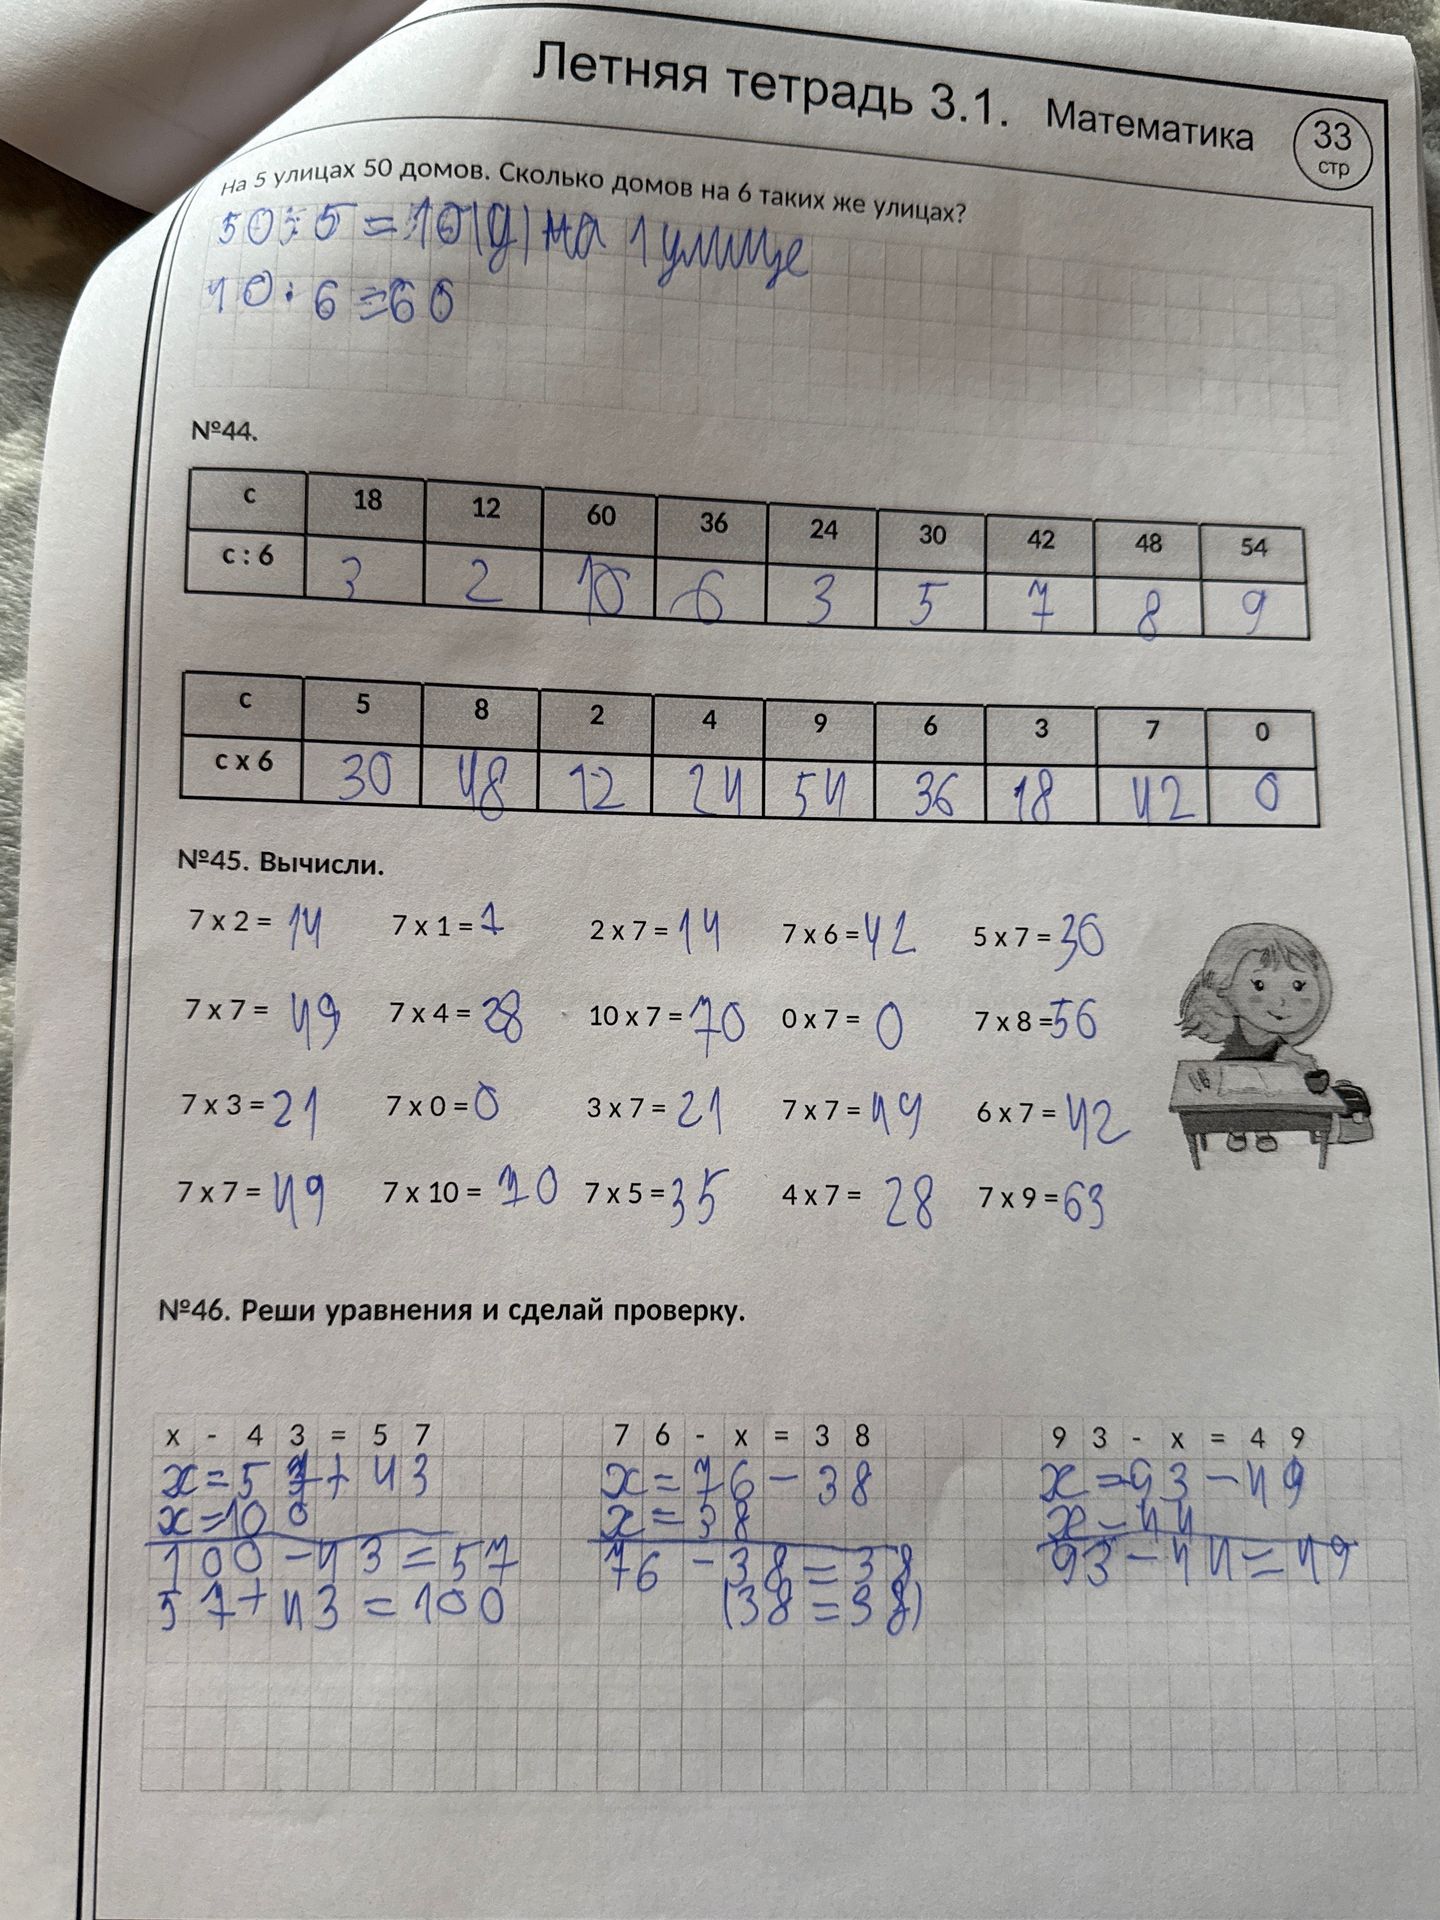 Летняя тетрадь 3.1. Математика 33 стр
На 5 улицах 50 домов. Сколько домов на 6 таких же улицах?
50:5=10(д) на 1 улице
10·6=60
№44.
с 18 12 60 36 24 30 42 48 54
с : 6 3 2 10 6 3 5 7 8 9
с 5 8 2 4 9 6 3 7 0
с х 6 30 48 12 24 54 36 18 42 0
№45. Вычисли.
7 х 2 = 14 7 х 1 = 7 2 х 7 = 14 7 х 6 = 42 5 х 7 = 30
7 х 7 = 49 7 х 4 = 28 10 х 7 = 70 0 х 7 = 0 7 х 8 = 56
7 х 3 = 21 7 х 0 = 0 3 х 7 = 21 7 х 7 = 49 6 х 7 = 42
7 х 7 = 49 7 х 10 = 70 7 х 5 = 35 4 х 7 = 28 7 х 9 = 63
№46. Реши уравнения и сделай проверку.
х - 43 = 57 76 - х = 38 93 - х = 49
х=57+43 х=76-38 х=93-49
х=100 х=38 х=44
100-43=57 76-38=38 93-44=49
57+43=100 (38=38)